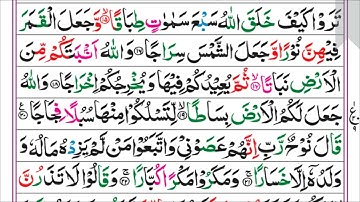 تَرَوْا كَيْفَ خَلَقَ اللّٰهُ سَبْعَ سَمٰوٰتٍ طِبَاقًا ۙ﴿۱۵﴾ وَّجَعَلَ الْقَمَرَ
فِيْهِنَّ نُوْرًا وَّجَعَلَ الشَّمْسَ سِرَاجًا ﴿۱۶﴾ وَاللّٰهُ اَنْۢبَتَكُمْ مِّنَ
الْاَرْضِ نَبَاتًا ۙ﴿۱۷﴾ ثُمَّ يُعِيْدُكُمْ فِيْهَا وَيُخْرِجُكُمْ اِخْرَاجًا ﴿۱۸﴾ وَاللّٰهُ
جَعَلَ لَكُمُ الْاَرْضَ بِسَاطًا ۙ﴿۱۹﴾ لِّتَسْلُكُوْا مِنْهَا سُبُلًا فِجَاجًا ﴿۲۰﴾
قَالَ نُوْحٌ رَّبِّ اِنَّهُمْ عَصَوْنِيْ وَاتَّبَعُوْا مَنْ لَّمْ يَزِدْهُ مَالُهٗ وَ
وَلَدُهٗۤ اِلَّا خَسَارًا ﴿۲۱﴾ وَمَكَرُوْا مَكْرًا كُبَّارًا ﴿۲۲﴾ وَقَالُوْا لَا تَذَرُنَّ